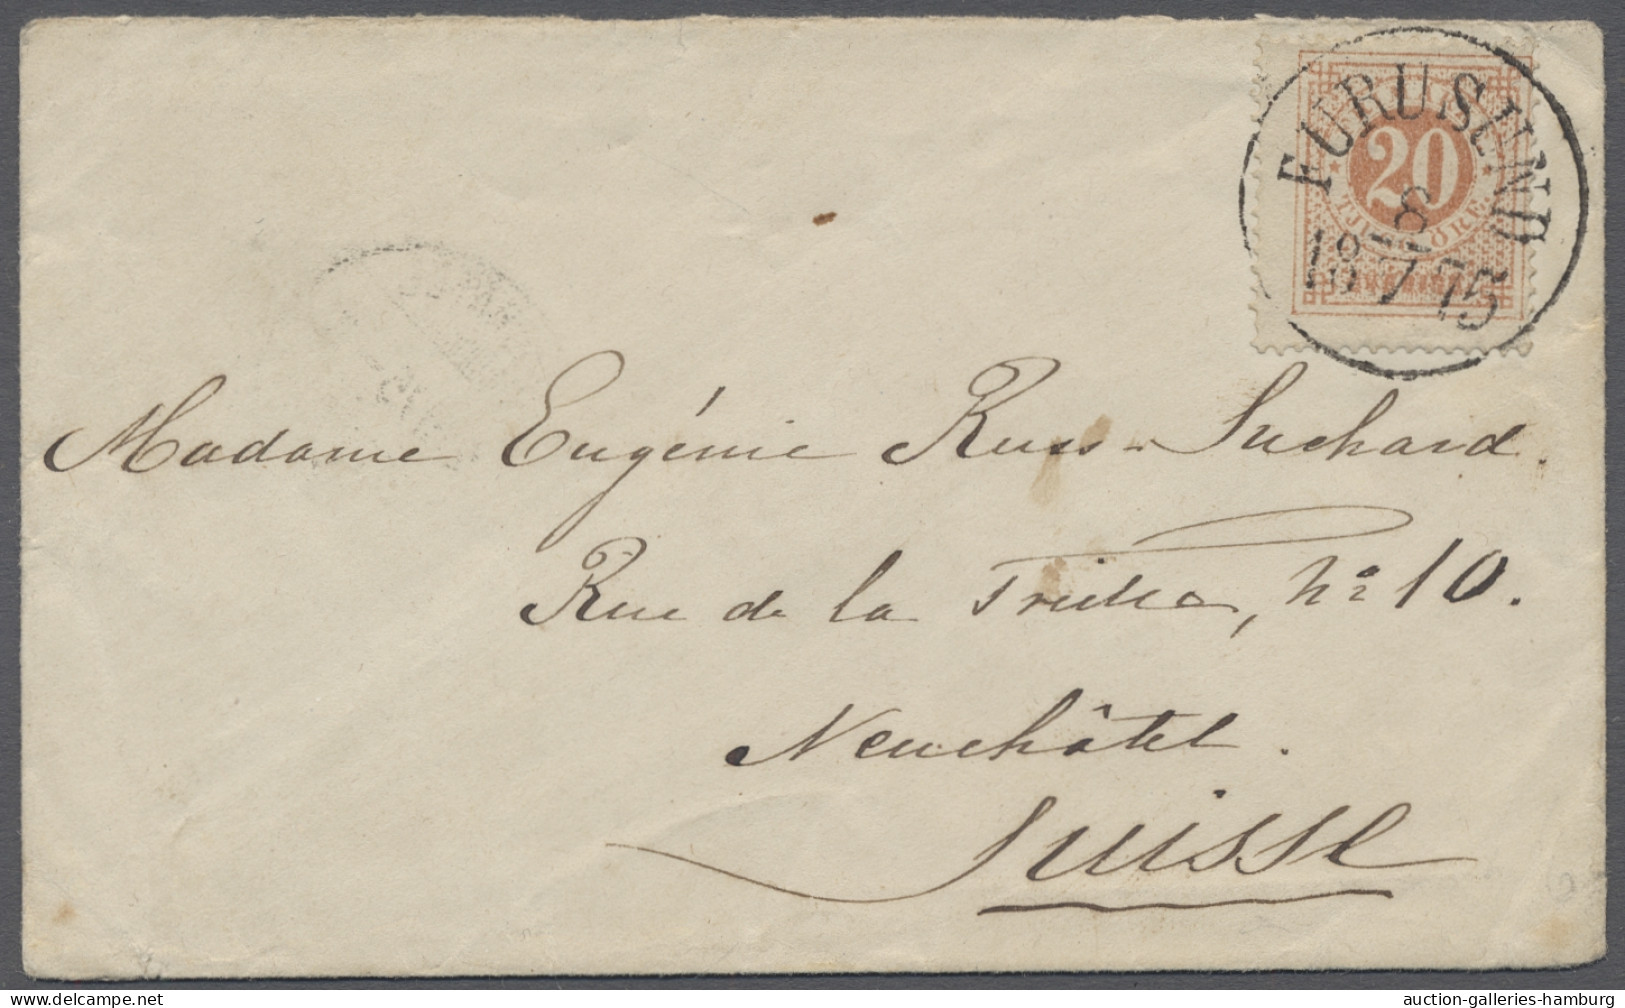 FURUSUND
8
18 7 75
20
TJUGO ÖRE
Madame Eugénie Russ-Suchard.
Rue de la Treille, No 10.
Neuchâtel.
Suisse
auction-galleries-hamburg